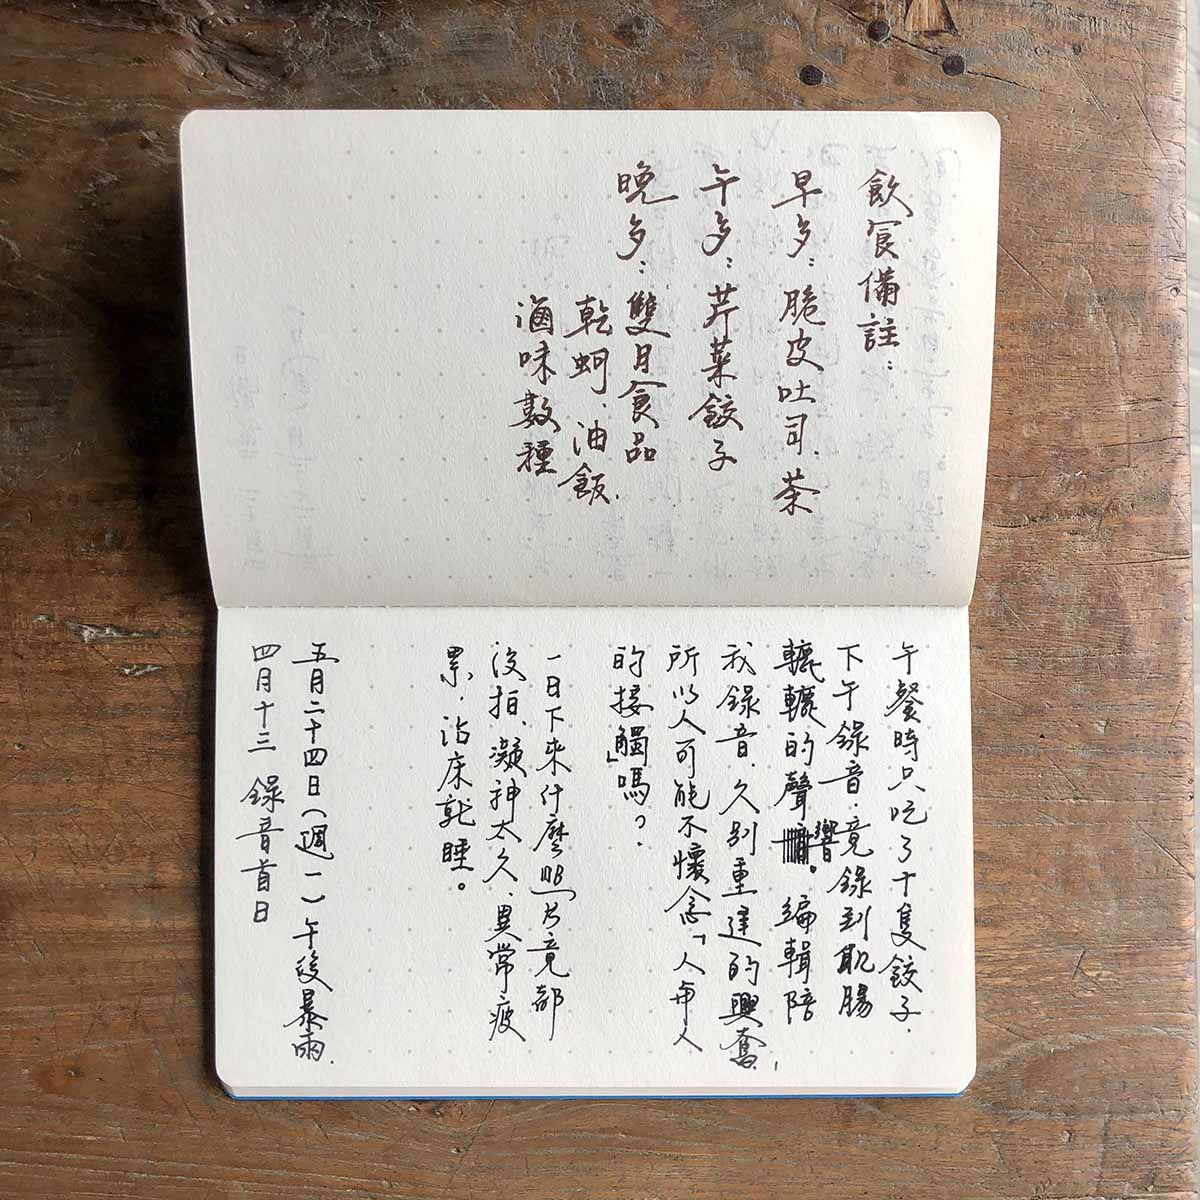 飲食備註：
早歺：脆皮吐司、茶
午歺：芹菜餃子
晚歺：雙月食品
乾蚵、油飯、
滷味數種
午餐時只吃了十隻餃子，
下午錄音，竟錄到肌腸
轆轆的聲響。編輯陪
我錄音，久別重逢的興奮，
所以人可能不懷念「人與人
的接觸」嗎？
一日下來什麼照片竟都
沒拍，凝神太久，異常疲
累，沾床就睡。
五月二十四日（週一）午後暴雨，
四月十三 錄音首日